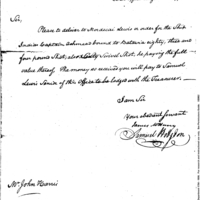 Sir,
Please to deliver to Mordecai Lewis or order for the Ship
Indian Captain bound to Batavia eighty, there are
four pound Shot, also Swivel Shot, he paying the full
value thereof. The money so received you will pay to Samuel
Lewis Senior of this Office to be lodged with the Treasurer.
I am Sir
Your obedient Servant
Samuel Hodgdon
Mr John Harris